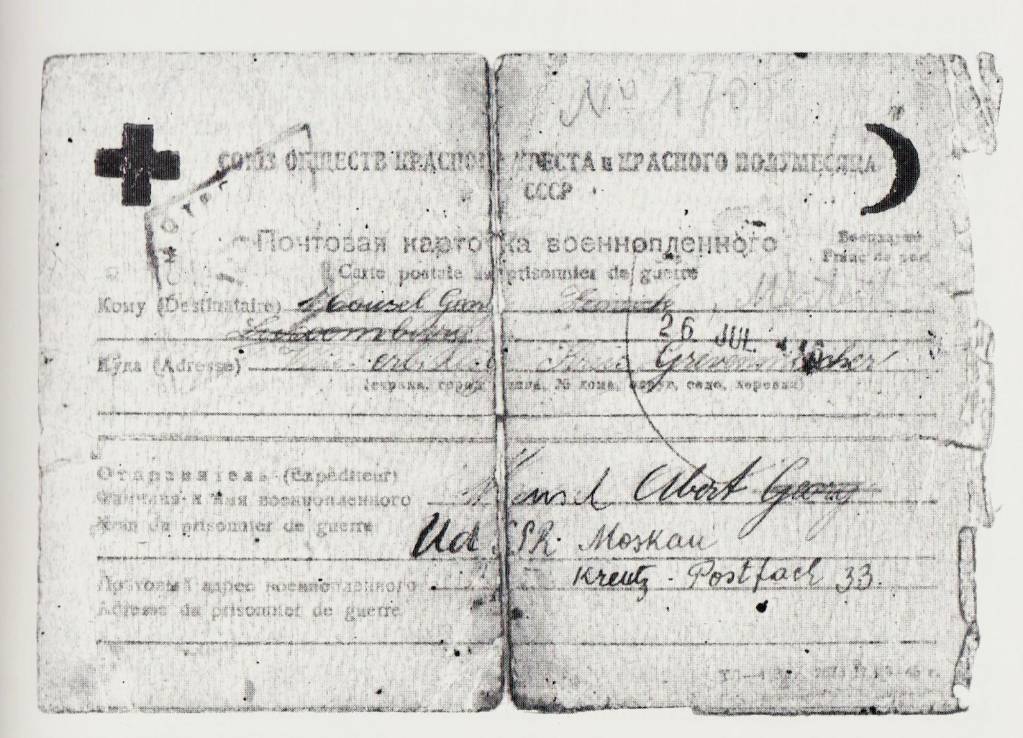 No 170
СОЮЗ ОБЩЕСТВ КРАСНОГО КРЕСТА и КРАСНОГО ПОЛУМЕСЯЦА
СССР
Почтовая карточка военнопленного
Carte postale du prisonnier de guerre
Бесплатно
Franc de port
Кому (Destinataire) Georg
Luxembourg
26 JUL
Куда (Adresse) Grevenmacher
(страна, город, улица, № дома, округ, село, деревня)
Отправитель (Expéditeur)
Фамилия и имя военнопленного
Nom du prisonnier de guerre
Albert Georg
UdSSR. Moskau
Kreutz - Postfach 33.
Почтовый адрес военнопленного
Adresse du prisonnier de guerre